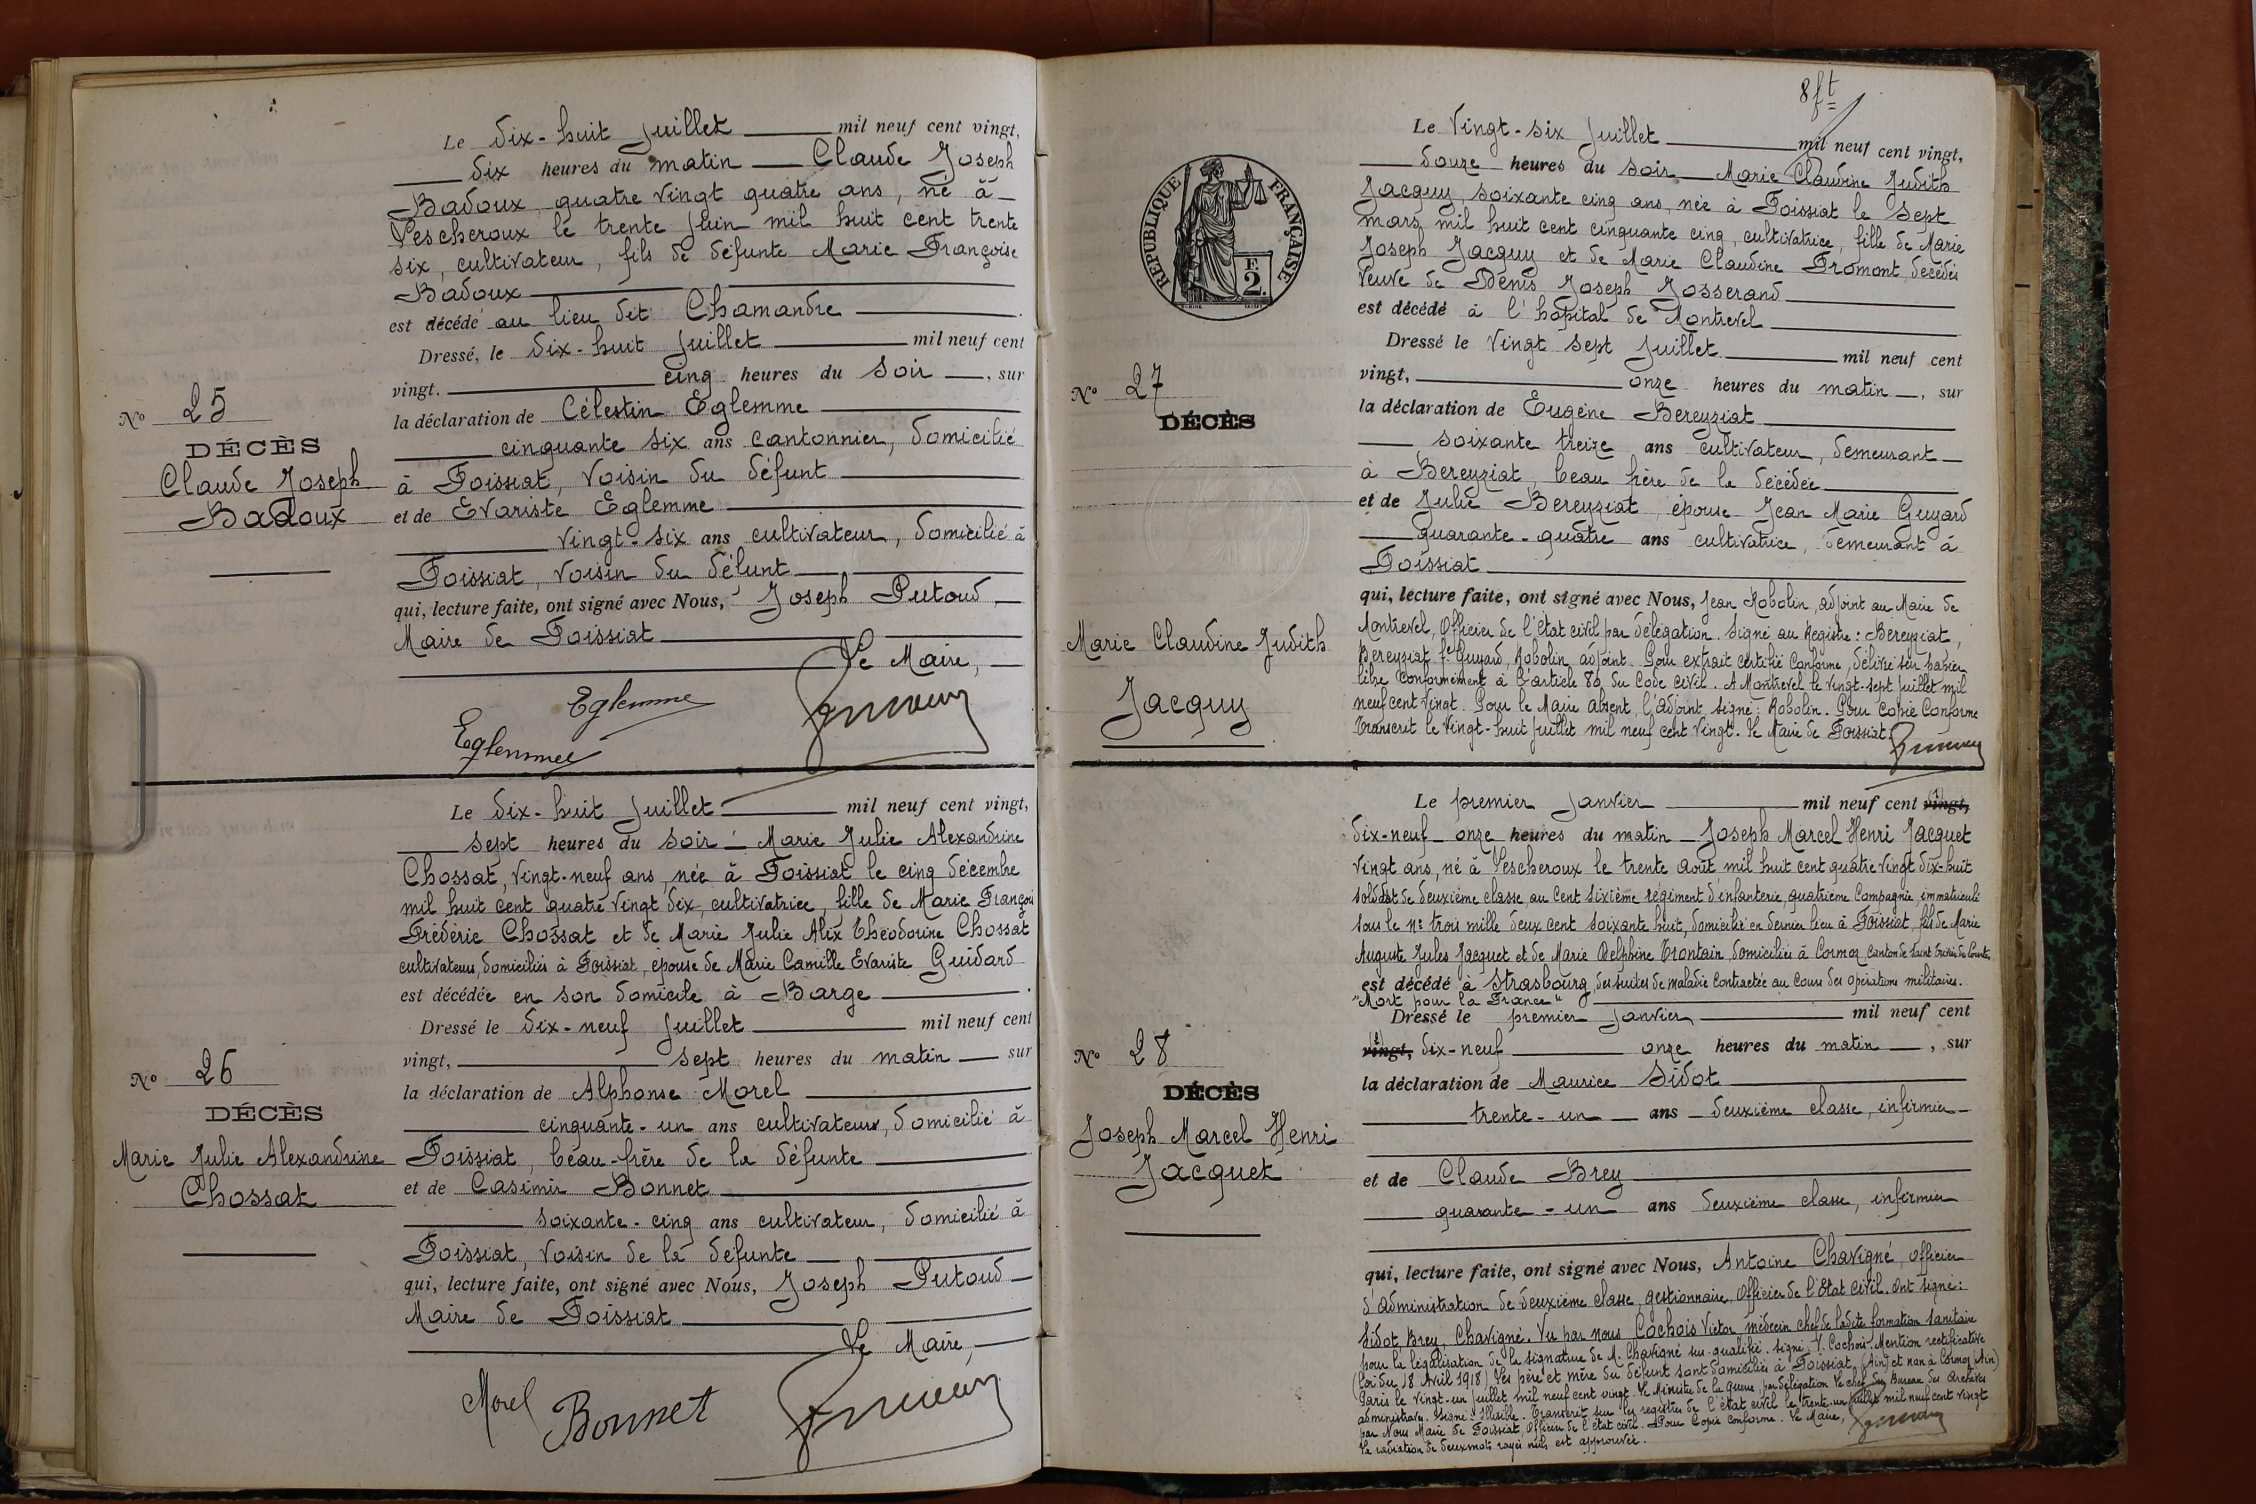 Le dix-huit juillet mil neuf cent vingt,
dix heures du matin Claude Joseph
Badoux, quatre vingt quatre ans, né à
Lescheroux le trente juin mil huit cent trente
six, cultivateur, fils de défunte Marie Françoise
Badoux
est décédé au lieu dit Chamandre
Dressé, le dix-huit juillet mil neuf cent
vingt. cinq heures du soir, sur
la déclaration de Célestin Eglemme
cinquante six ans cantonnier, domicilié
à Foissiat, voisin du défunt
et de Evariste Eglemme
vingt-six ans cultivateur, domicilié à
Foissiat, voisin du défunt
qui, lecture faite, ont signé avec Nous, Joseph Putoud,
Maire de Foissiat
Le Maire,
Eglemme
Eglemme
N° 25
DÉCÈS
Claude Joseph
Badoux
Le dix-huit juillet mil neuf cent vingt,
sept heures du soir Marie Julie Alexandrine
Chossat, vingt-neuf ans, née à Foissiat le cinq décembre
mil huit cent quatre vingt dix, cultivatrice, fille de Marie François
Frédéric Chossat et de Marie Julie Alix Théodorine Chossat
cultivateurs, domiciliés à Foissiat, épouse de Marie Camille Evariste Guidard
est décédée en son domicile à Barge
Dressé le dix-neuf juillet mil neuf cent
vingt, sept heures du matin sur
la déclaration de Alphonse Morel
cinquante-un ans cultivateur, domicilié à
Foissiat, beau-frère de la défunte
et de Casimir Bonnet
soixante-cinq ans cultivateur, domicilié à
Foissiat, voisin de la défunte
qui, lecture faite, ont signé avec Nous, Joseph Putoud
Maire de Foissiat
Le Maire,
Morel Bonnet
N° 26
DÉCÈS
Marie Julie Alexandrine
Chossat
8ft
RÉPUBLIQUE FRANÇAISE
F.
2
Le vingt-six juillet mil neuf cent vingt,
douze heures du soir Marie Claudine Judith
Jacquy, soixante cinq ans, née à Foissiat le sept
mars mil huit cent cinquante cinq, cultivatrice, fille de Marie
Joseph Jacquy et de Marie Claudine Fromont, décédés
veuve de Denis Joseph Josserand
est décédé à l'hôpital de Montrevel
Dressé le vingt sept juillet mil neuf cent
vingt, onze heures du matin, sur
la déclaration de Eugène Bereyziat
soixante treize ans cultivateur, demeurant
à Bereyziat, beau frère de la décédée
et de Julie Bereyziat, épouse Jean Marie Guyard
quarante-quatre ans cultivatrice, demeurant à
Foissiat
qui, lecture faite, ont signé avec Nous, Jean Robolin, adjoint au Maire de
Montrevel, Officier de l'état civil par délégation. Signé au Registre : Bereyziat,
Bereyziat fe Guyard, Robolin adjoint. Pour extrait certifié conforme, délivré sur papier
libre conformément à l'article 80 du Code Civil. A Montrevel le vingt-sept juillet mil
neuf cent vingt. Pour le Maire absent, l'adjoint signé : Robolin. Pour copie conforme
Transcrit le vingt-huit juillet mil neuf cent vingt. Le Maire de Foissiat
N° 27
DÉCÈS
Marie Claudine Judith
Jacquy
Le premier janvier mil neuf cent vingt,
dix-neuf onze heures du matin Joseph Marcel Henri Jacquet
vingt ans, né à Lescheroux le trente août mil huit cent quatre vingt dix-huit
soldat de deuxième classe au cent sixième régiment d'infanterie, quatrième Compagnie, immatriculé
sous le n° trois mille deux cent soixante huit, domicilié en dernier lieu à Foissiat, fils de Marie
Auguste Jules Jacquet et de Marie Delphine Trontain domiciliés à Cormoz canton de Saint Trivier de Courtes
est décédé à Strasbourg, des suites de maladie contractée au cours des opérations militaires.
"Mort pour la France"
Dressé le premier janvier mil neuf cent
vingt, dix-neuf onze heures du matin, sur
la déclaration de Maurice Sidot
trente-un ans deuxième classe, infirmier
et de Claude Brey
quarante-un ans deuxième classe, infirmier
qui, lecture faite, ont signé avec Nous, Antoine Chavigné, Officier
d'Administration de deuxième classe, gestionnaire, Officier de l'Etat civil. Ont signé :
Sidot, Brey, Chavigné. Vu par nous Cochois Victor médecin chef de ladite formation sanitaire
pour la légalisation de la signature de M. Chavigné sus-qualifié. signé : V. Cochois. Mention rectificative
(Loi du 18 Avril 1918) Les père et mère du défunt sont domiciliés à Foissiat (Ain) et non à Cormoz (Ain)
Paris le vingt-un juillet mil neuf cent vingt. Le Ministre de la guerre, par délégation le chef du Bureau des Archives
administratives. signé : Illisible. Transcrit sur les registres de l'état civil le trente-un juillet mil neuf cent vingt
par Nous Maire de Foissiat, Officier de l'état civil. Pour copie conforme. Le Maire,
La radiation de deux mots rayés nuls est approuvée.
N° 28
DÉCÈS
Joseph Marcel Henri
Jacquet